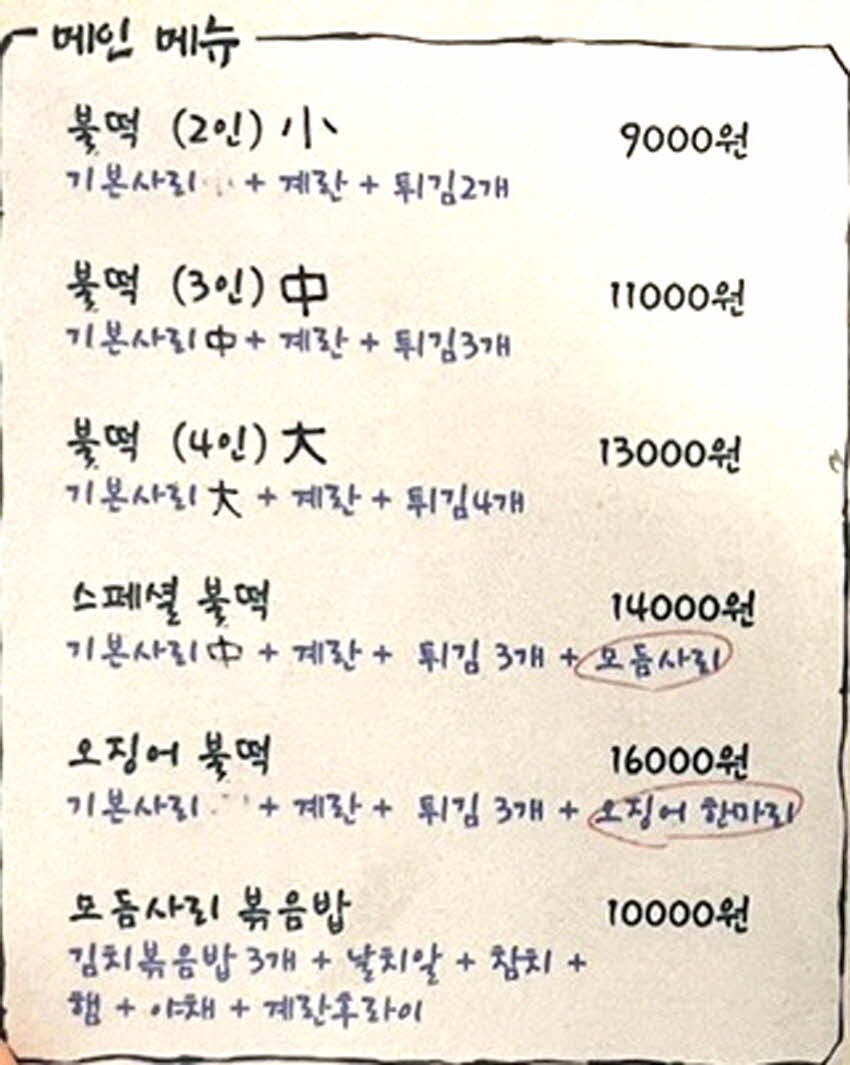 메인 메뉴
불떡 (2인) 小 9000원
기본사리 + 계란 + 튀김2개
불떡 (3인) 中 11000원
기본사리 中 + 계란 + 튀김3개
불떡 (4인) 大 13000원
기본사리 大 + 계란 + 튀김4개
스페셜 불떡 14000원
기본사리 中 + 계란 + 튀김 3개 + 모듬사리
오징어 불떡 16000원
기본사리 + 계란 + 튀김 3개 + 오징어 한마리
모듬사리 볶음밥 10000원
김치볶음밥 3개 + 날치알 + 참치 +
햄 + 야채 + 계란후라이